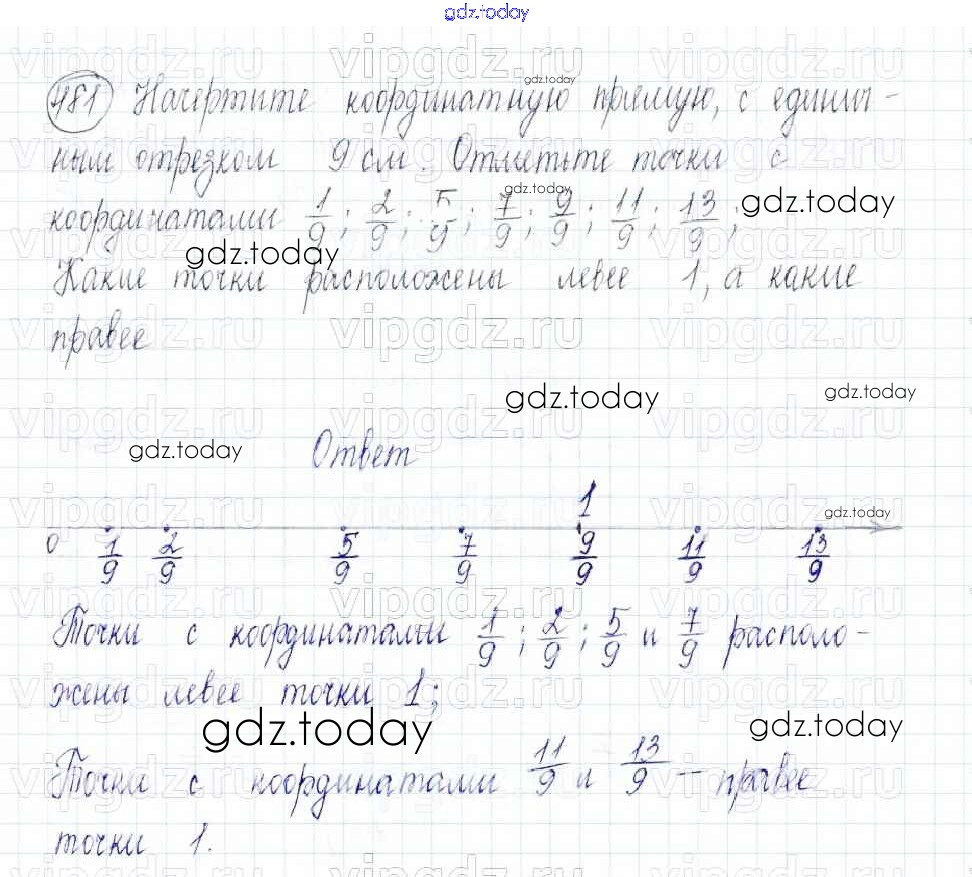 gdz.today
481 Начертите координатную прямую, с единич-
ным отрезком 9 см. Отметьте точки с
координатами 1/9; 2/9; 5/9; 7/9; 9/9; 11/9; 13/9;
Какие точки расположены левее 1, а какие
правее
Ответ
1
0 1/9 2/9 5/9 7/9 9/9 11/9 13/9
Точки с координатами 1/9; 2/9; 5/9 и 7/9 располо-
жены левее точки 1;
Точки с координатами 11/9 и 13/9 – правее
точки 1.